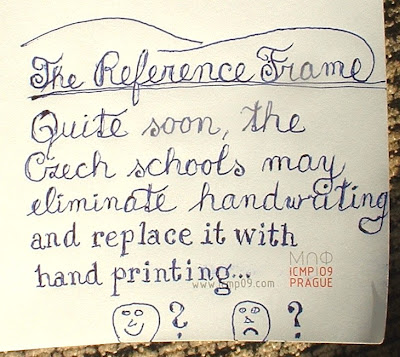 The Reference Frame
Quite soon, the
Czech schools may
eliminate handwriting
and replace it with
hand printing...
ΜΛΦ
ICMP|09
PRAGUE
www.icmp09.com
? ?